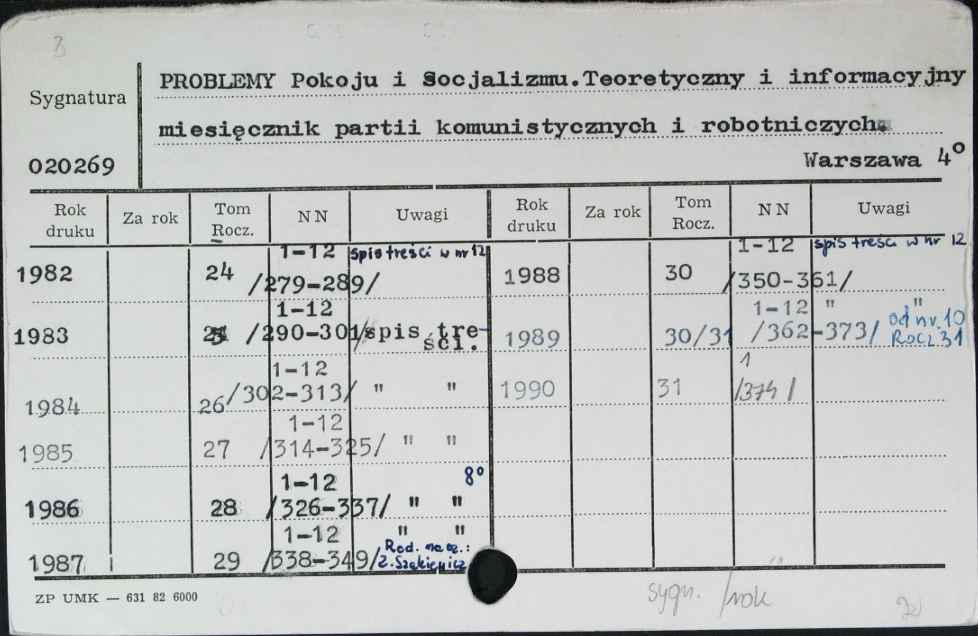 3
PROBLEMY Pokoju i Socjalizmu.Teoretyczny i informacyjny
Sygnatura
miesięcznik partii komunistycznych i robotniczych.
020269
Warszawa 4°
Rok druku Za rok Tom Rocz. NN Uwagi Rok druku Za rok Tom Rocz. NN Uwagi
1982 24 1-12 /279-289/ spis treści w nr 12
1988 30 1-12 /350-361/ spis treści w nr 12
1983 25 1-12 /290-301/ spis treści.
1989 30/31 1-12 /362-373/ " " od nr.10 Rocz 31
1984 26 1-12 /302-313/ " "
1990 31 1 /374/
1985 27 1-12 /314-325/ " "
1986 28 1-12 /326-337/ " " 8°
1987 29 1-12 /338-349/ " " Red. nacz.: Z.Szakiewicz
ZP UMK — 631 82 6000
sygn. /rok